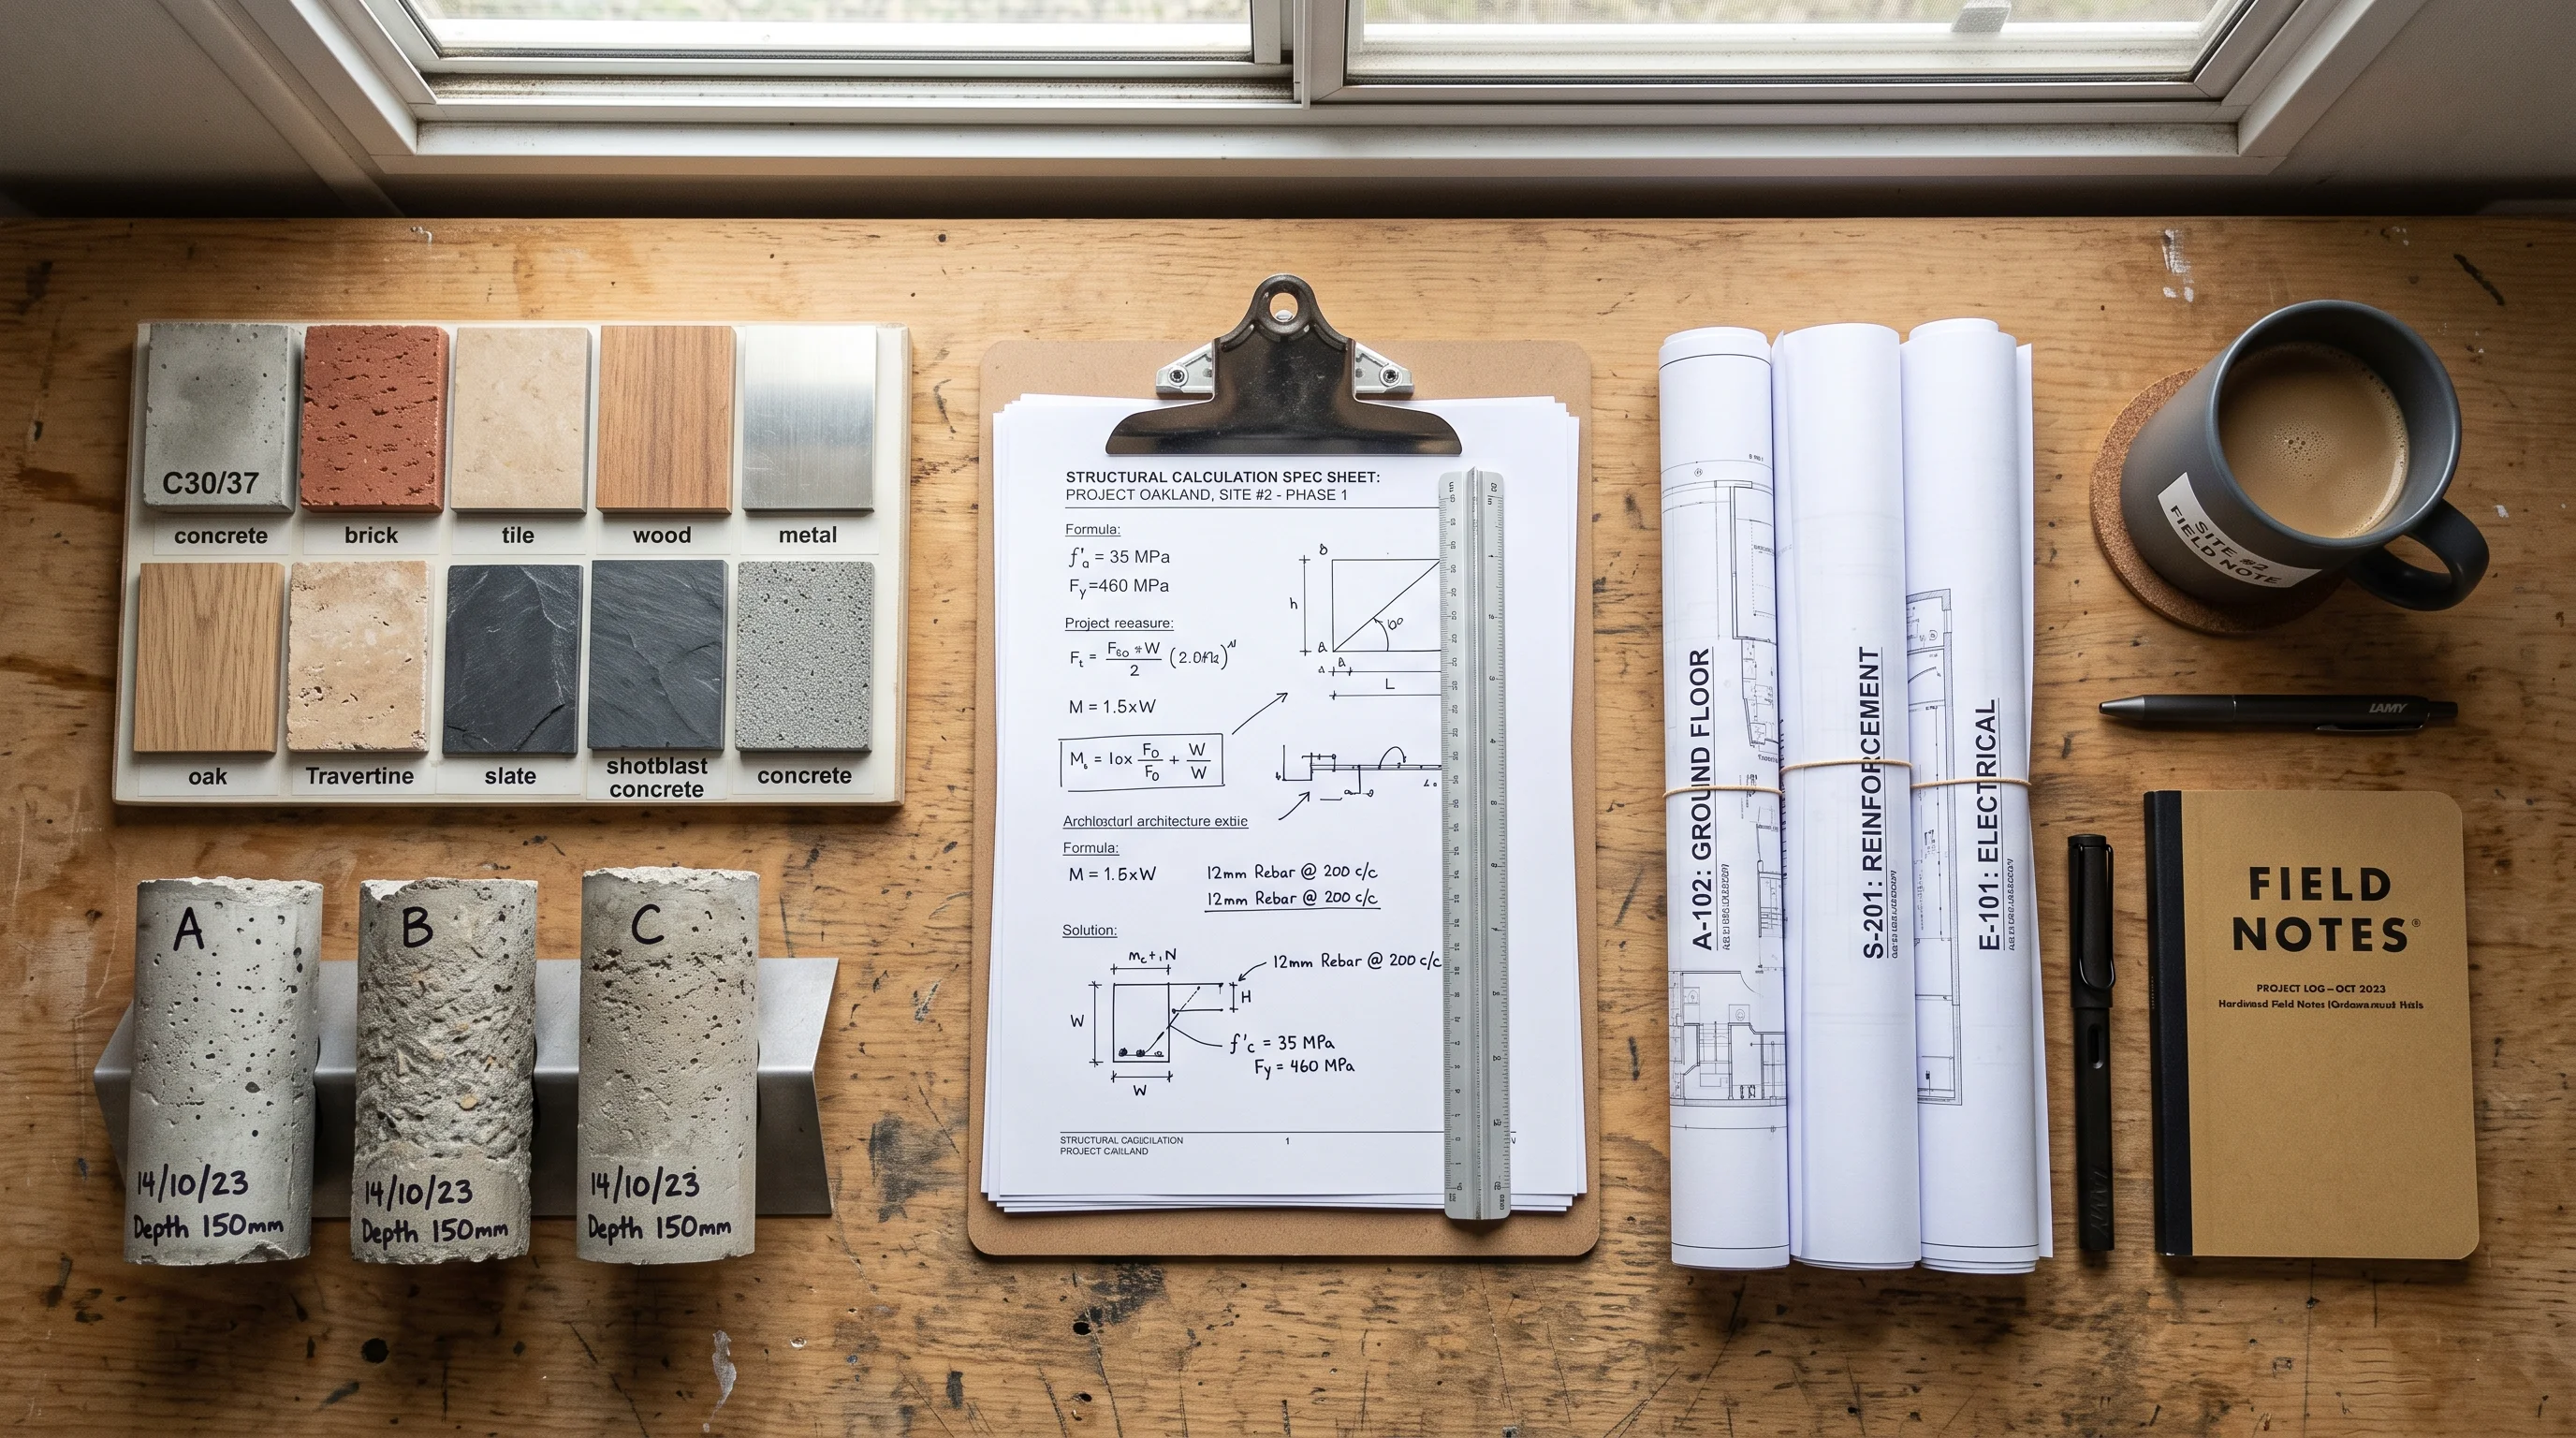 C30/37
concrete
brick
tile
wood
metal
oak
Travertine
slate
shotblast
concrete
concrete
A
14/10/23
Depth 150mm
B
14/10/23
Depth 150mm
C
14/10/23
Depth 150mm
STRUCTURAL CALCULATION SPEC SHEET:
PROJECT OAKLAND, SITE #2 - PHASE 1
Formula:
f'a = 35 MPa
Fy=460 MPa
Project reeasure:
M = 1.5xW
h
L
Formula:
M = 1.5xW
12mm Rebar @ 200 c/c
12mm Rebar @ 200 c/c
Solution:
12mm Rebar @ 200 c/c
H
W
f'c = 35 MPa
Fy = 460 MPa
W
STRUCTURAL
1
PROJECT
A-102: GROUND FLOOR
S-201: REINFORCEMENT
E-101: ELECTRICAL
SITE #2
FIELD NOTE
LAMY
LAMY
FIELD
NOTES®
PROJECT LOG – OCT 2023
Field Notes